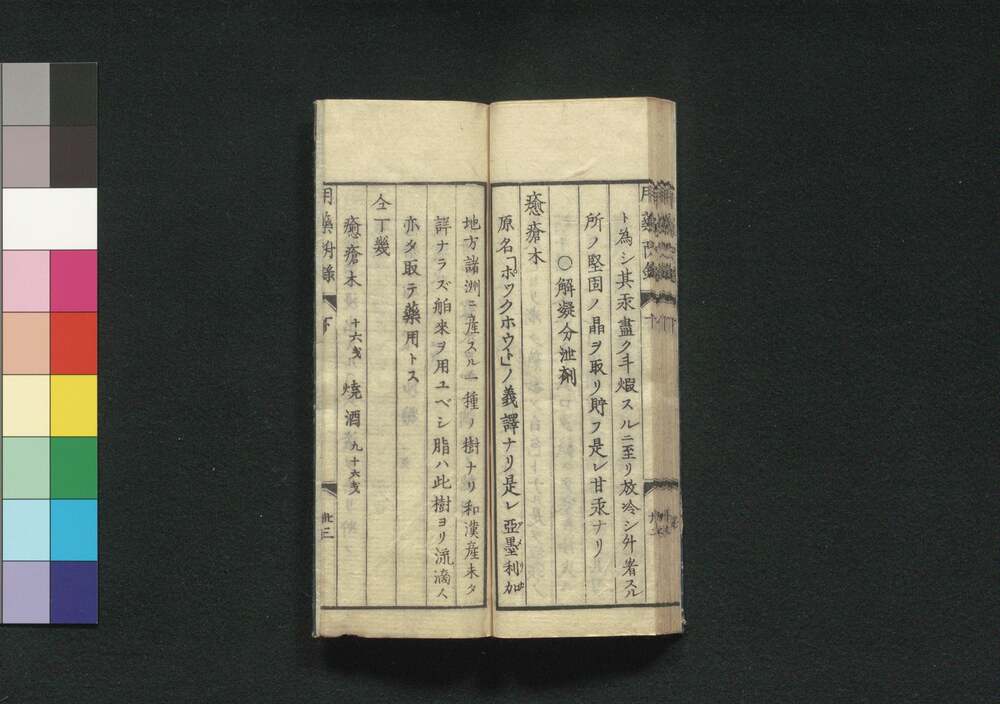 ト為シ其汞盡ク斗煆スルニ至リ放冷シ外者スル
所ノ堅固ノ晶ヲ取リ貯フ是レ甘汞ナリ
○解凝分泄剤
癒瘡木
原名「ポックホウト」ノ義譯ナリ是レ亞墨利加
地方諸洲ニ産スル一種ノ樹ナリ和漢産未タ
詳ナラズ舶来ヲ用ユベシ脂ハ此樹ヨリ流滴ス
亦タ取テ藥用トス
仝丁幾
癒瘡木 十六戔 燒酒 九十六戔
用藥 下